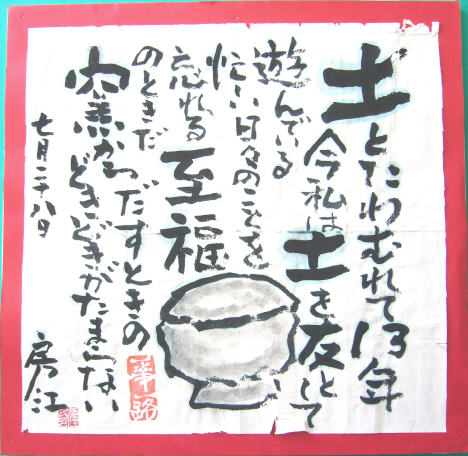 土とたわむれて13年
今私は土を友として
遊んでいる
忙しい日々のことを
忘れる至福
のときだ
窯からだすときの
どきどきがたまらない
七月二十八日
房江
一筆一路